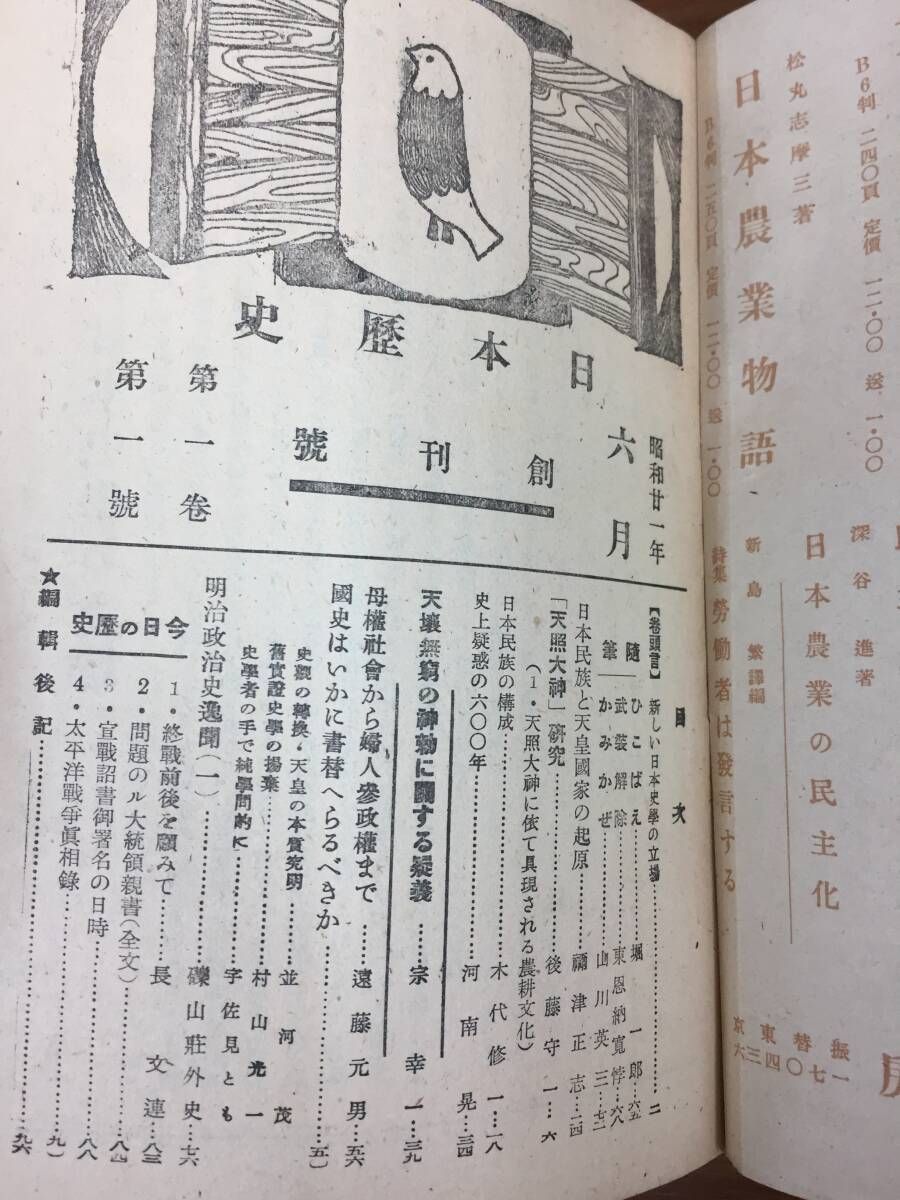 B6判 二四〇頁 定價 一二・〇〇 送 一・〇〇
深谷進著
日本農業の民主化
松丸志摩三著
日本農業物語
B6判 二五〇頁 定價 一二・〇〇 送 一・〇〇
新島繁譯編
詩集 勞働者は發言する
振替東京
一七〇四三六
日本歷史
昭和廿一年
六月
創刊號
第一卷
第一號
目次
【卷頭言】 新しい日本史學の立場……二
隨筆
ひこばえ……堀一郎…六五
武裝解除……東恩納寛惇…六八
かみかぜ……山川英三…七二
日本民族と天皇國家の起原……禰津正志…二四
「天照大神」硏究……後藤守一…六
(1・天照大神に依て具現される農耕文化)
日本民族の構成……木代修一…一八
史上疑惑の六〇〇年……河南晃…三四
天壤無窮の神勅に關する疑義……宗幸一…三九
母權社會から婦人參政權まで……遠藤元男…五六
國史はいかに書替へらるべきか……(五一)
史觀の轉換・天皇の本質究明……並河茂
舊實證史學の揚棄……村山光一
史學者の手で純學問的に……宇佐見とも
明治政治史逸聞(一)……礫山莊外史…七六
今日の歷史
1・終戰前後を顧みて……長文連…八三
2・問題のル大統領親書(全文)……八四
3・宣戰詔書御署名の日時……八八
4・太平洋戰爭眞相錄……九一
★編輯後記……九六